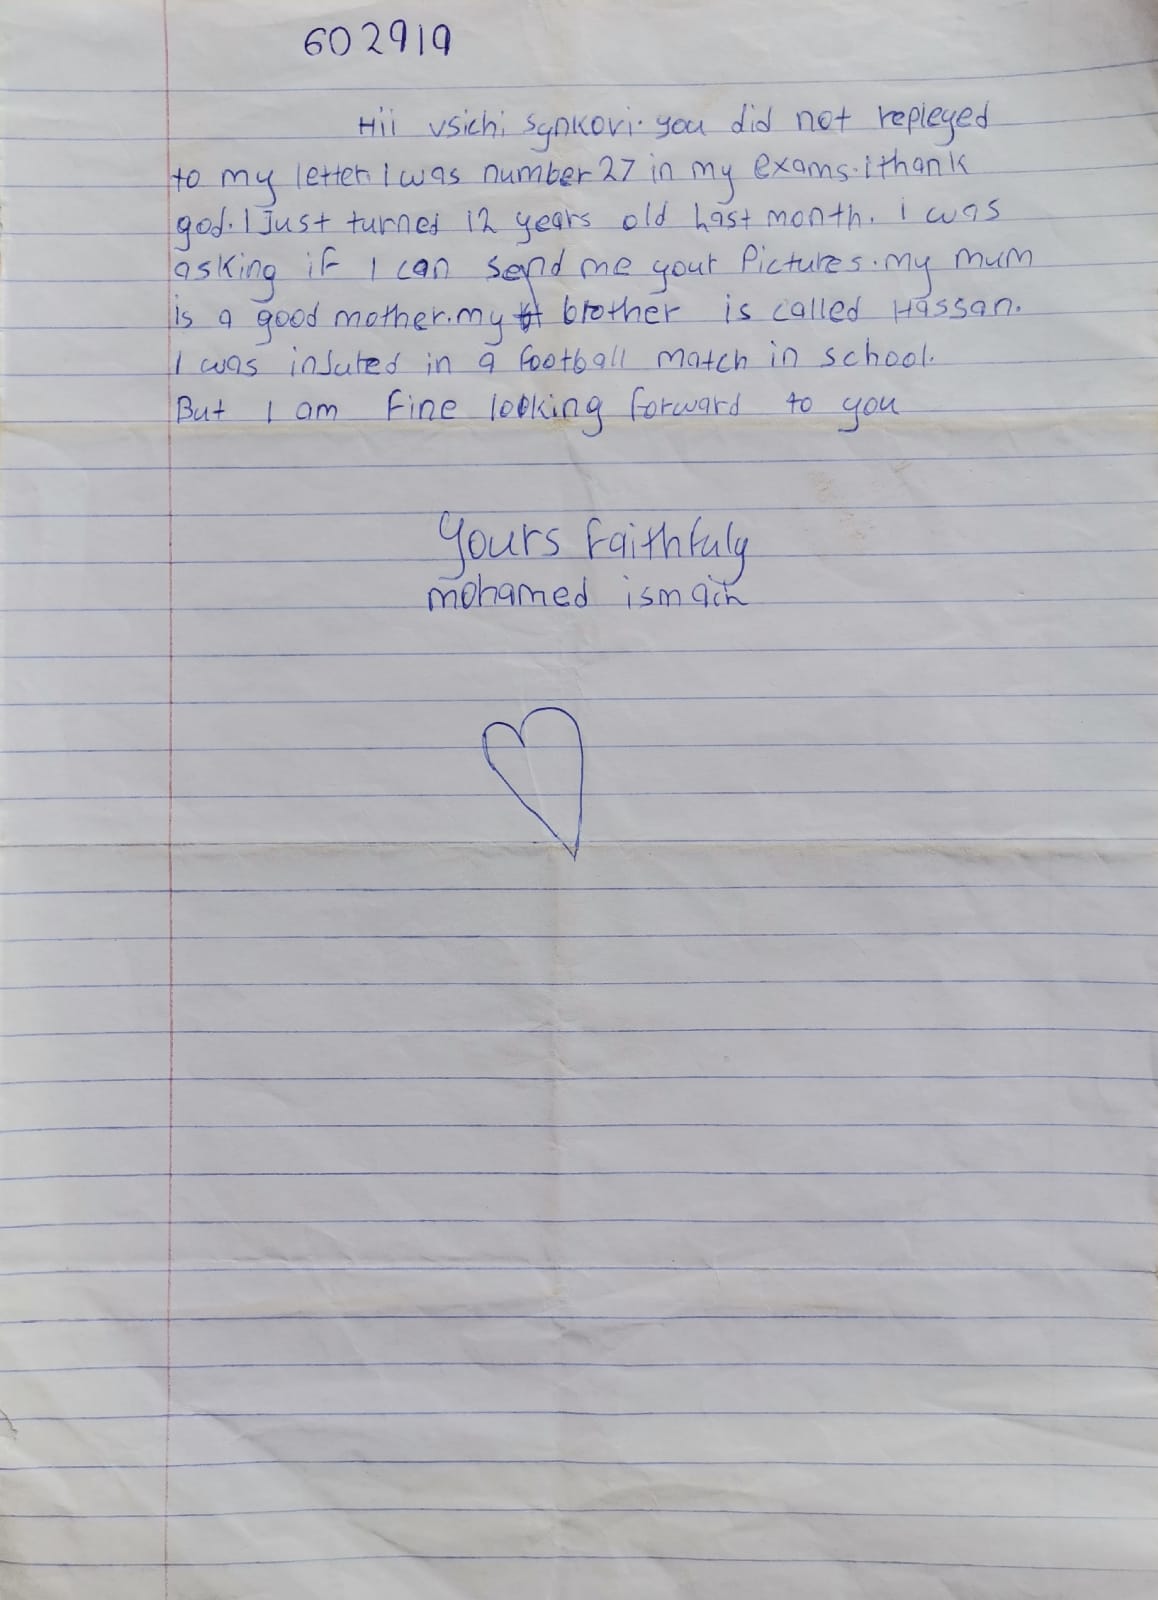 602919
Hii vsichi synkovi. you did not repleyed
to my letter. I was number 27 in my exams. i thank
god. I Just turned 12 years old last month. i was
asking if I can send me your Pictures. my mum
is a good mother. my brother is called Hassan.
I was injured in a football match in school.
But I am fine looking forward to you
Yours faithfuly
mohamed ismail